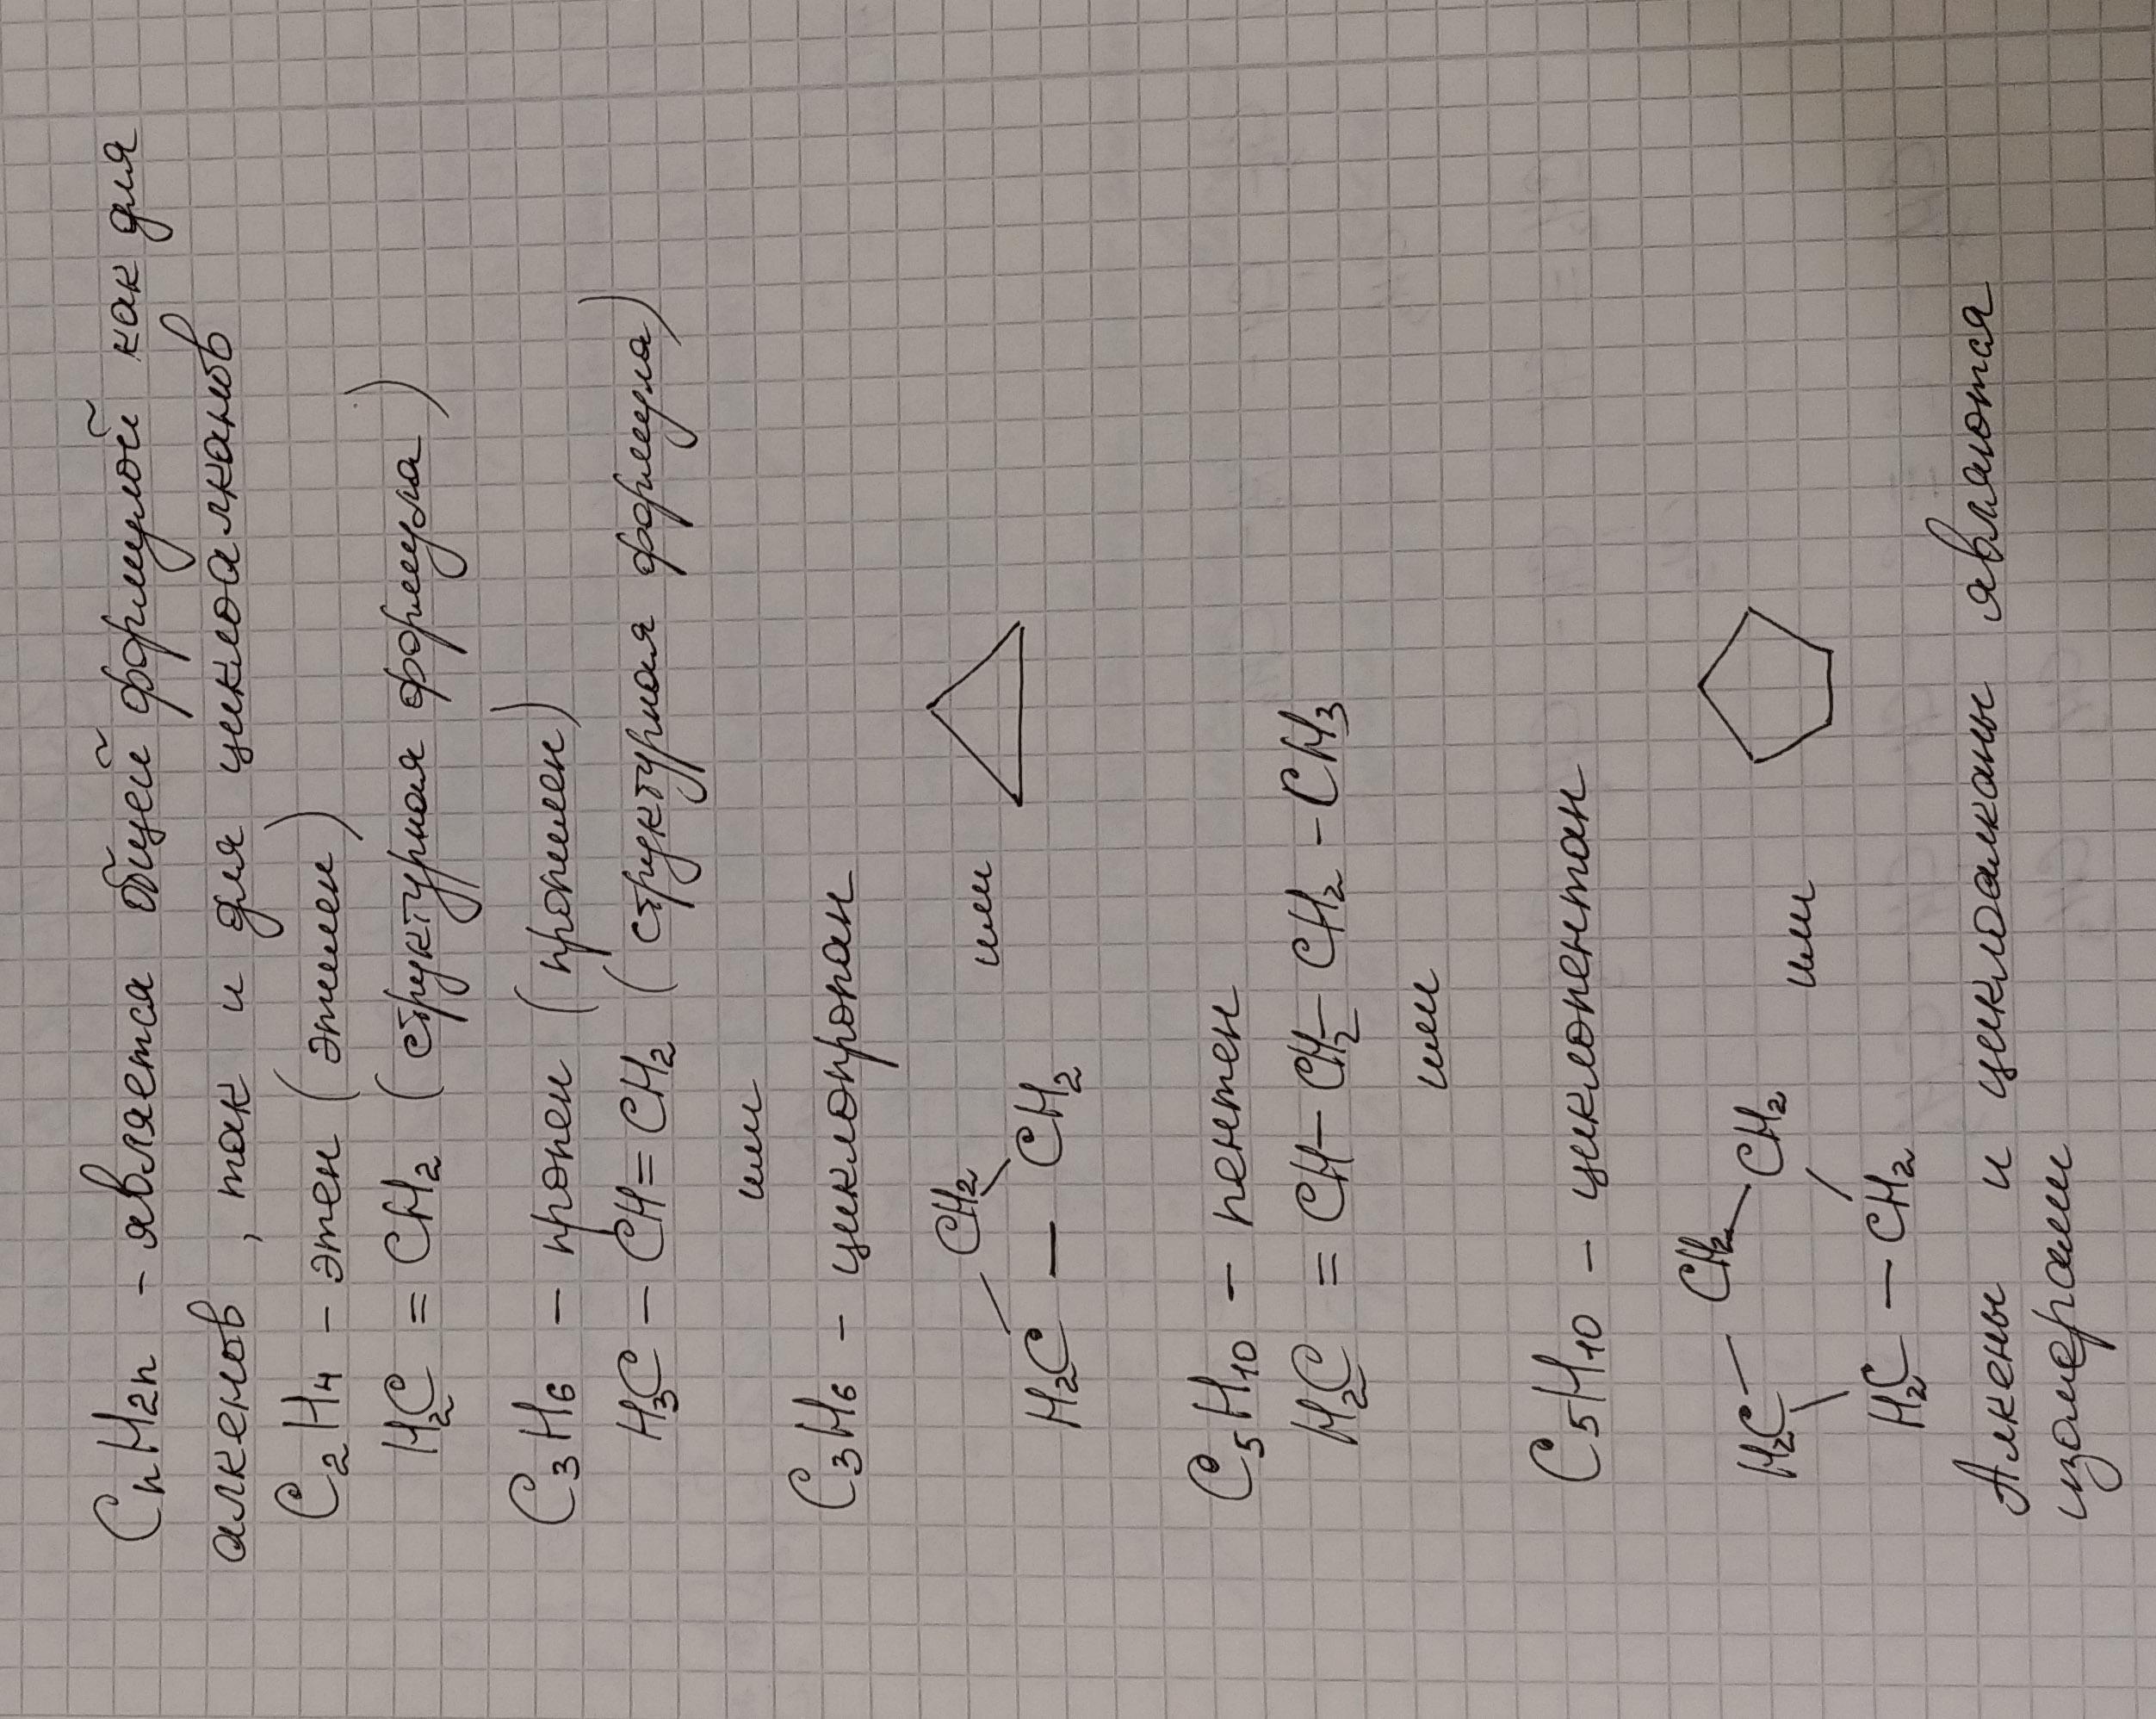 CnH2n - является общей формулой как для
алкенов, так и для циклоалканов
C2H4 - этен (этилен)
H2C = CH2 (структурная формула)
C3H6 - пропен (пропилен)
H3C - CH = CH2 (структурная формула)
или
C3H6 - циклопропан
CH2
H2C - CH2 или
C5H10 - пентен
H2C = CH - CH2 - CH2 - CH3
или
C5H10 - циклопентан
H2C - CH2 - CH2 или
H2C - CH2
Алкены и циклоалканы являются
изомерами